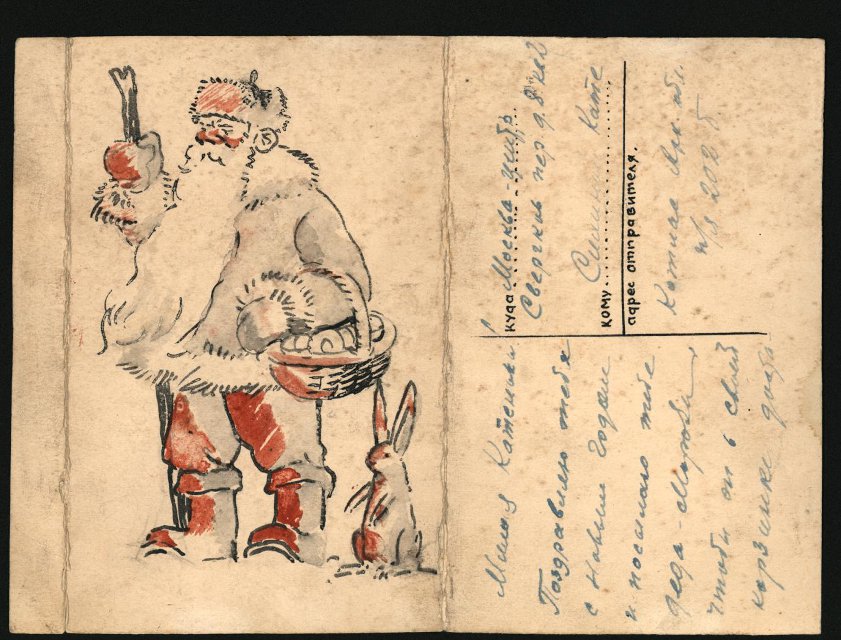 куда Москва-центр
Сверчков пер. д. 8 кв 2
кому Кате
адрес отправителя.
п/я 202
Милая Катенька!
Поздравляю тебя
с Новым Годом
и посылаю тебе
деда-Мороза,
чтобы он в своей
корзинке